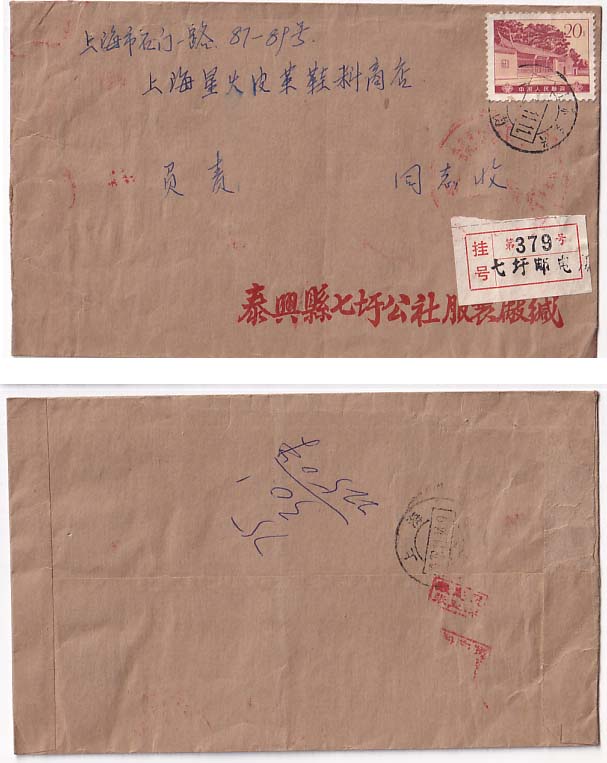 上海市石门一路 87-89号.
上海星火皮革鞋料商店.
20分
中国人民邮政
负责 同志收
挂号 第379号
七圩邮电局
泰興縣七圩公社服装厰缄
上海